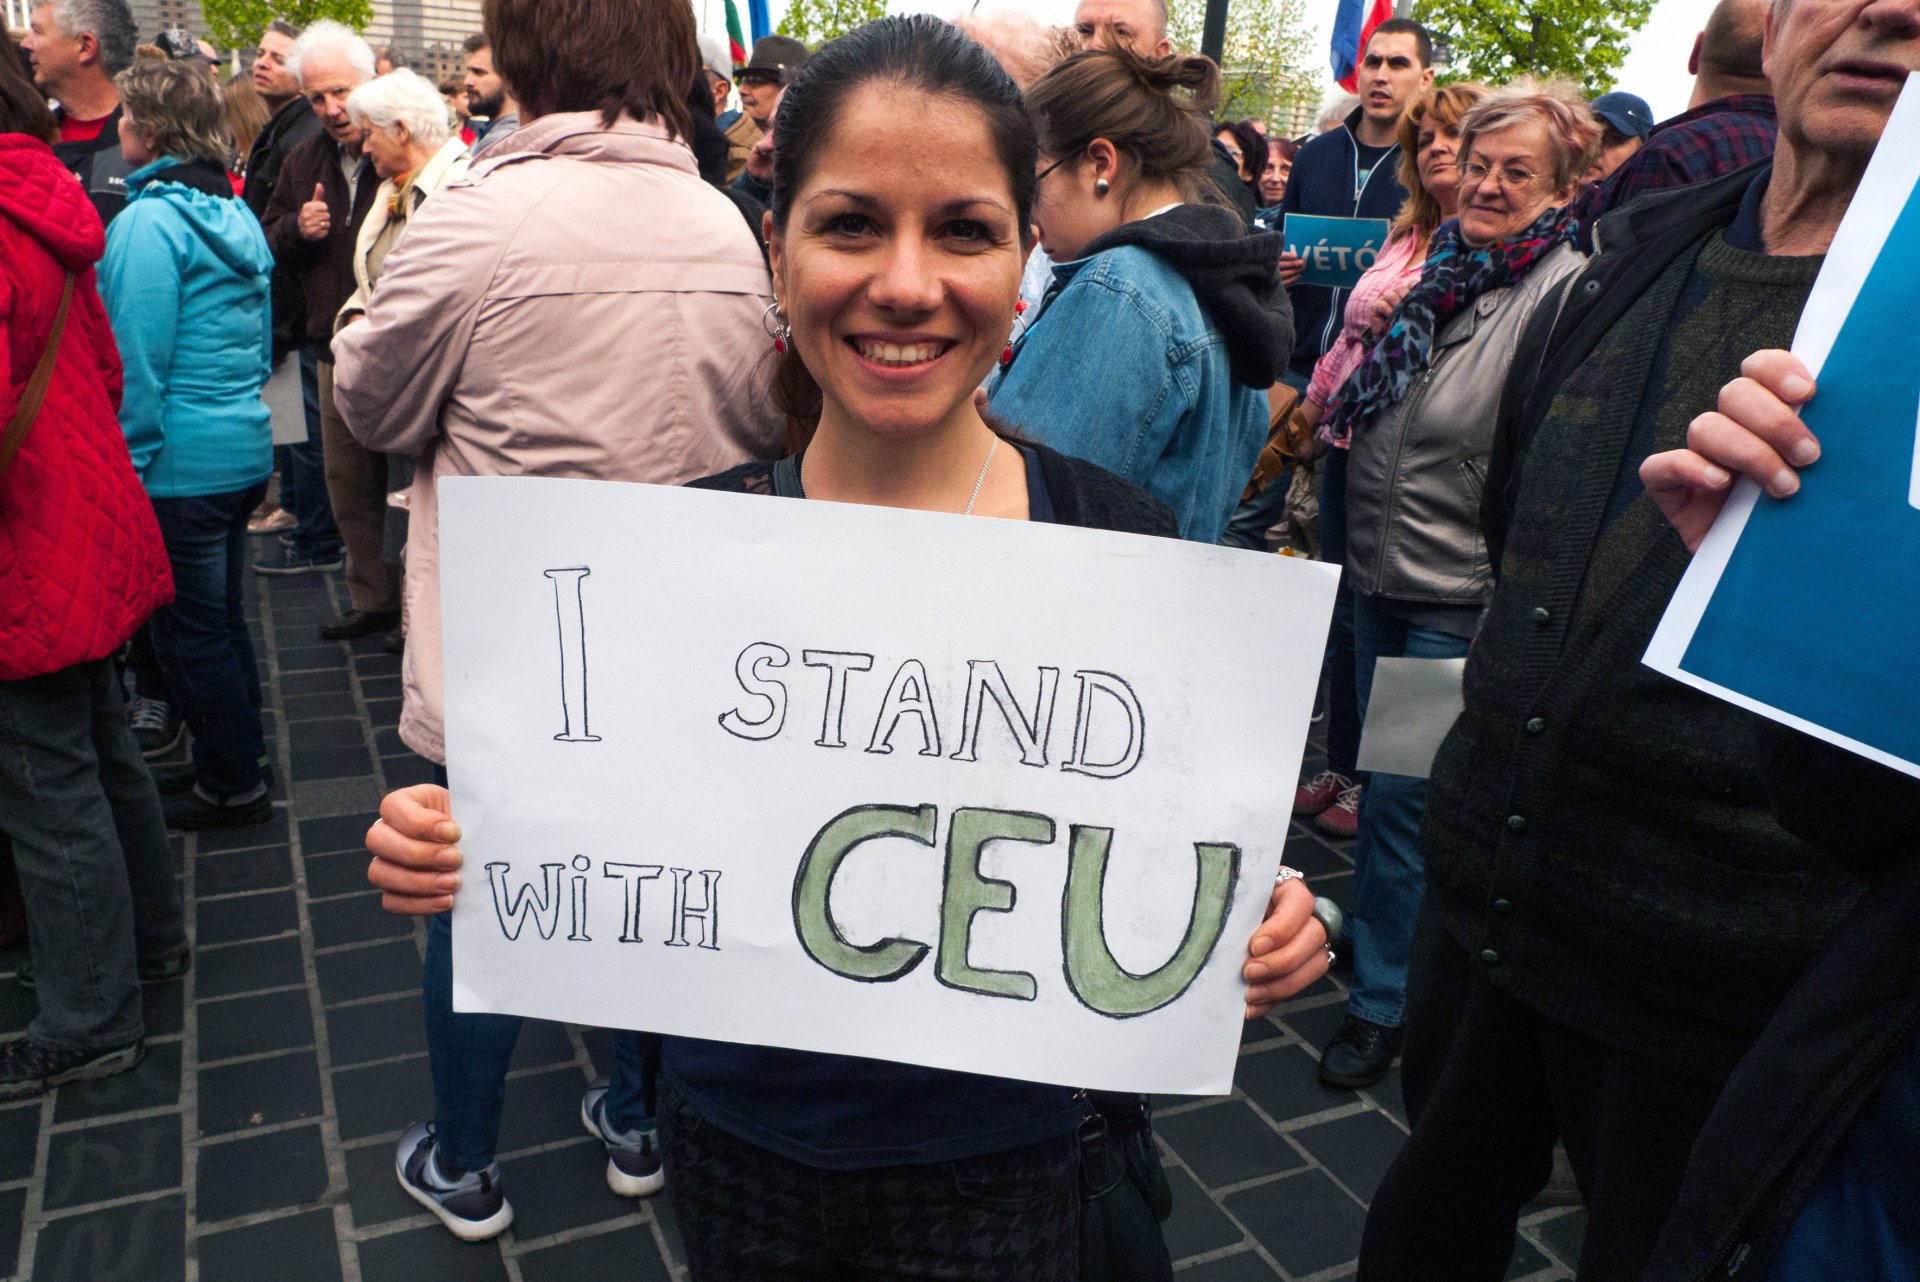 I STAND
WiTH CEU
VÉTÓ